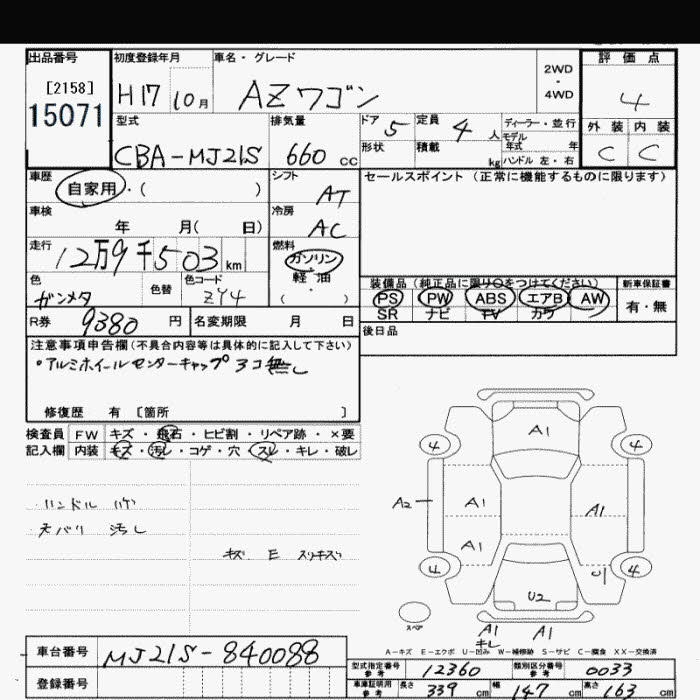 出品番号 初度登録年月 車名・グレード 評価点
[2158]
15071
H17 10月 AZワゴン 2WD・4WD 4
型式 排気量 ドア 5 定員 4人 ディーラー・並行 外装 内装
CBA-MJ21S 660 cc 形状 積載 kg モデル年式 年 ハンドル 左・右 C C
車歴 自家用・( ) シフト AT セールスポイント(正常に機能するものに限ります)
車検 年 月( 日) 冷房 AC
走行 12万9千503 km 燃料 ガソリン 軽油 ( )
色 ガンメタ 色替 色コード ZY4
装備品(純正品に限り○をつけてください) 新車保証書
PS PW ABS エアB AW 有・無
SR ナビ TV カワ
R券 9380 円 名変期限 月 日 後日品
注意事項申告欄(不具合内容等は具体的に記入して下さい)
・アルミホイールセンターキャップ3コ無し
修復歴 有 [箇所 ]
検査員 FW キズ・飛石・ヒビ割・リペア跡・×要
記入欄 内装 キズ・汚レ・コゲ・穴・スレ・キレ・破レ
ハンドル ハゲ
天バリ 汚し
キズ E スリキズ
A1
4 4
A2 A1 A1
A1
4 U1 4
U2
スペア
A1 A1
キレ
A-キズ E-エクボ U-凹み W-補修跡 S-サビ C-腐食 XX-交換済
車台番号 MJ21S-840088
登録番号
型式指定番号 参考 12360 類別区分番号 参考 0033
車庫証明用 参考 長さ 339 cm 幅 147 cm 高さ 163 cm